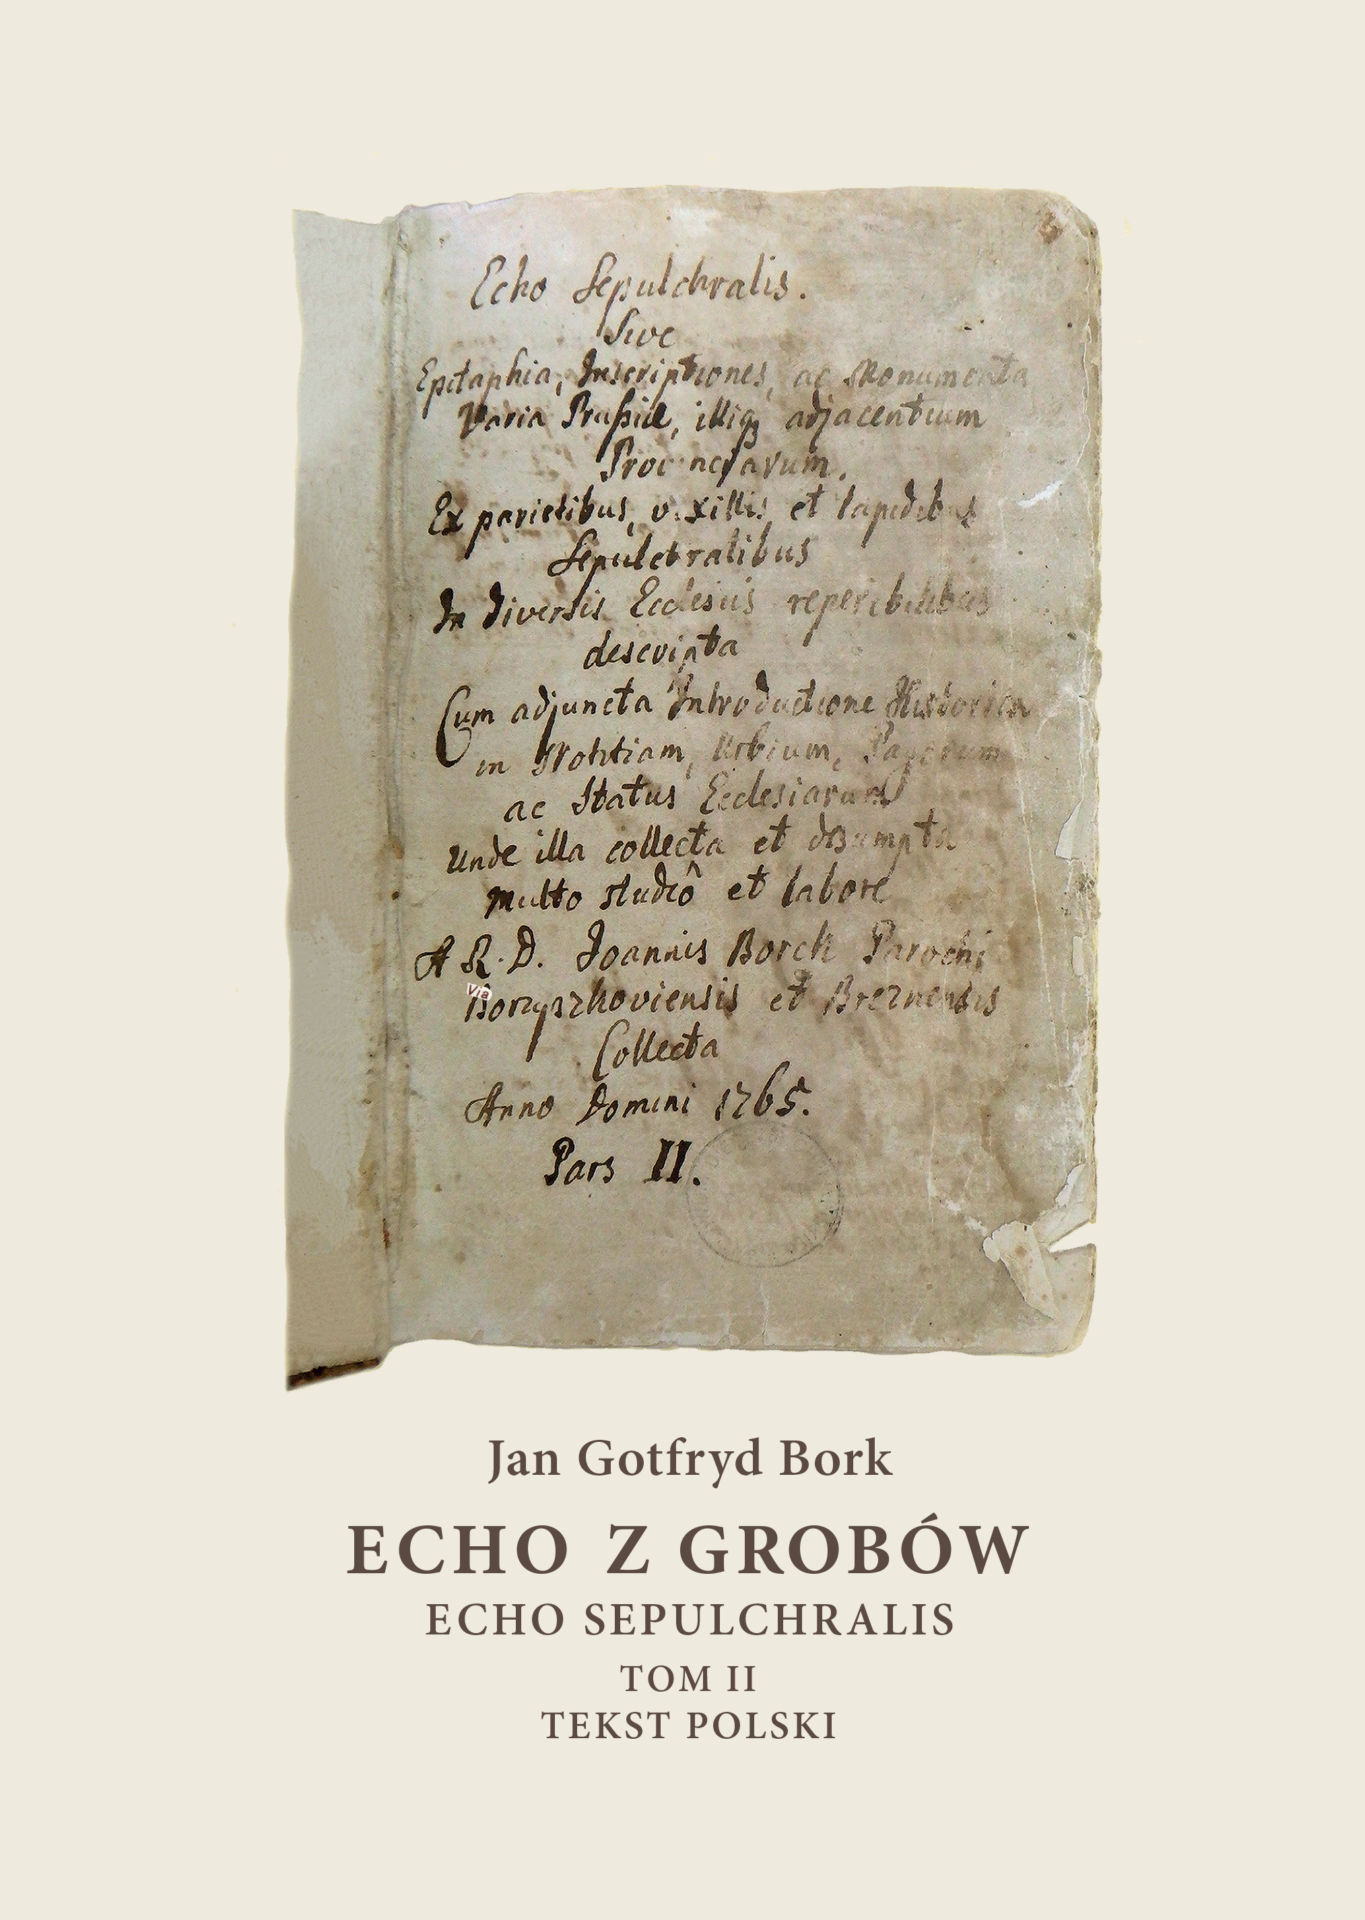 Echo Sepulchralis.
Sive
Epitaphia, Inscriptiones, ac Monumenta
Varia Prußiæ, illiq3 adjacentium
Provinciarum.
Ex parietibus, vexillis et lapidibus
Sepulchralibus
In diversis Ecclesiis reperibilibus
descripta
Cum adjuncta Introductione Historica
in Notitiam, Urbium, Pagorum
ac Status Ecclesiarum
Unde illa collecta et
multo studiô et labore
A R. D. Joannis Borck Parochi
Via
Borzyszkoviensis et Breznensis
Collecta
Anno Domini 1765.
Pars II.
Jan Gotfryd Bork
ECHO Z GROBÓW
ECHO SEPULCHRALIS
TOM II
TEKST POLSKI